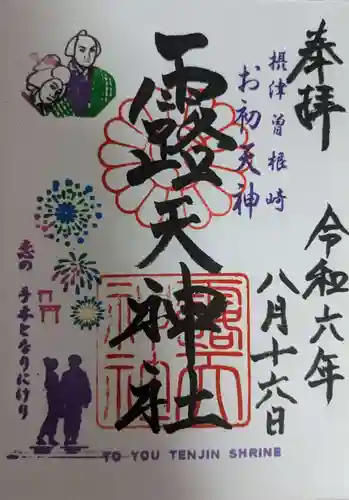 奉拝
摂津曽根崎
お初天神
露天神社
令和六年
八月十六日
恋の手本となりにけり
TO YOU TENJIN SHRINE